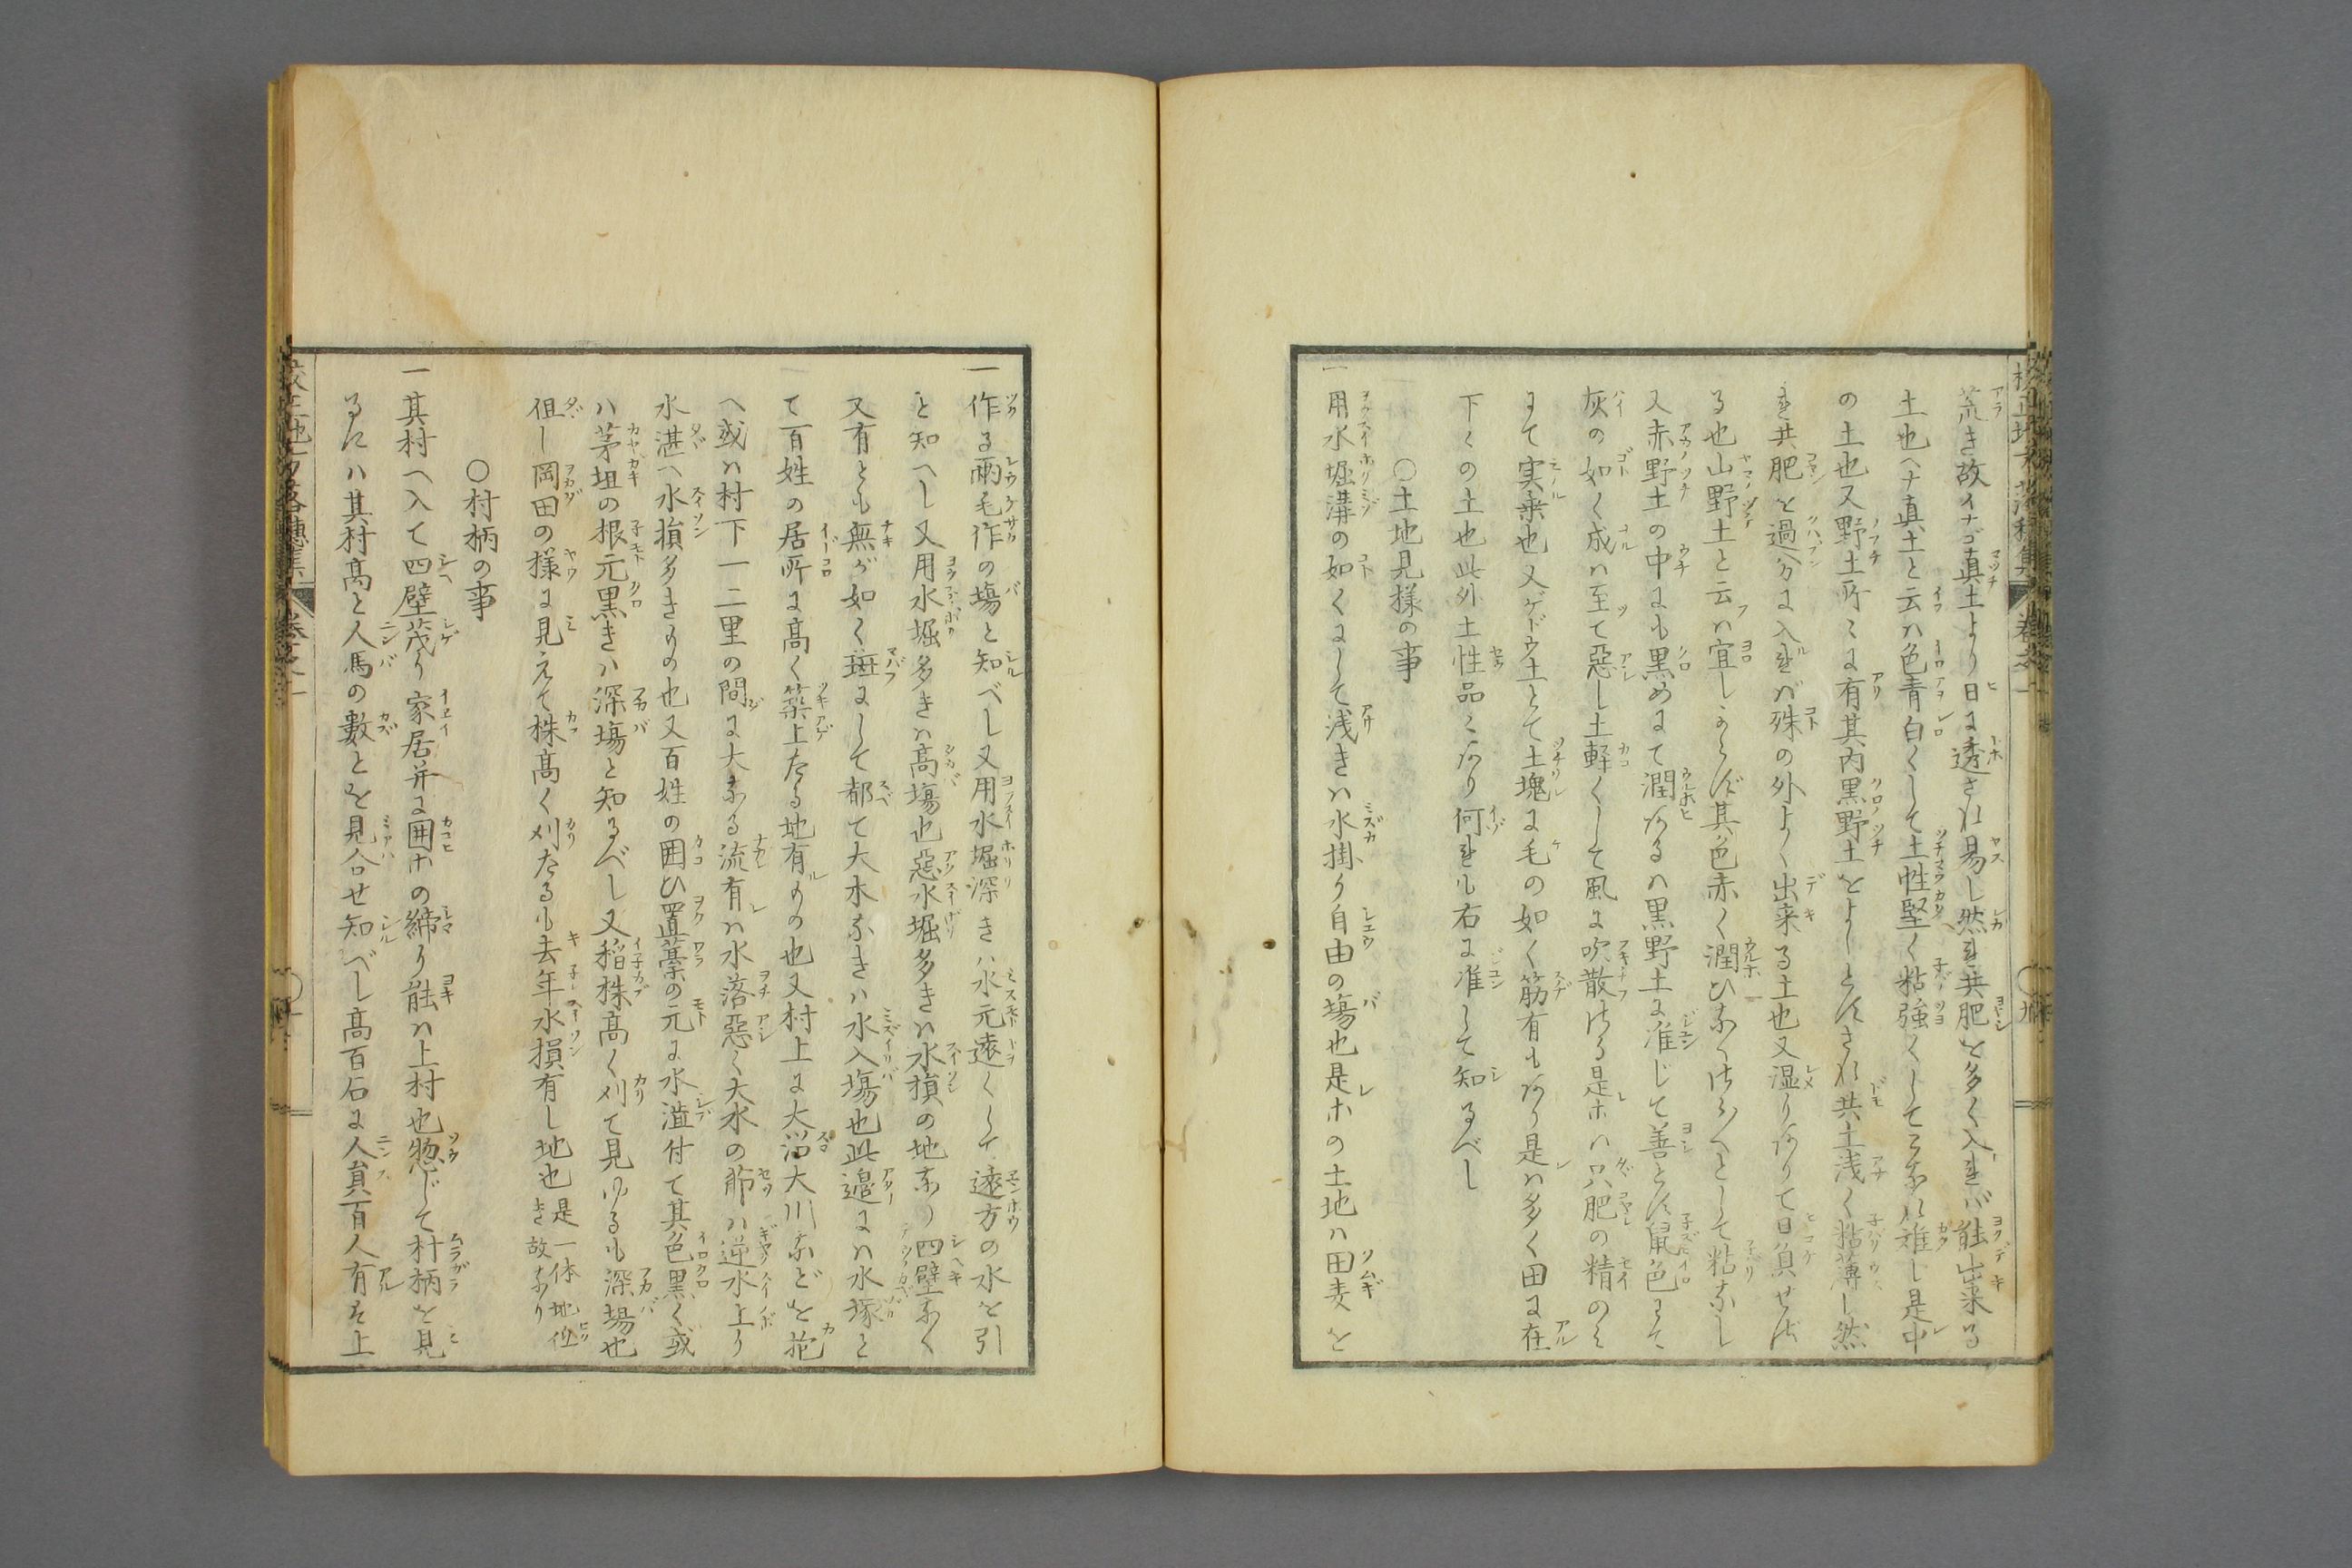 荒き故イナゴ真土より日に透され易し然れ共肥を多く入れバ能出来る
土也ヘナ真土と云ハ色青白くして土性堅く粘強くしてこなれ難し是中
の土也又野土所々に有其内黒野土をよしとすされ共土浅く粘薄し然
れ共肥を過分に入れバ殊の外よく出来る土也又湿りありて日負せざ
る也山野土と云ハ宜しからず其色赤く潤ひなくはらへとして粘なし
又赤野土の中にも黒めにて潤あるハ黒野土に准じて善とす鼠色にて
灰の如く成ハ至て惡し土軽くして風に吹散ける是ホハ只肥の精のみ
にて実乗也又ゲドウ土とて土塊に毛の如く筋有もあり是ハ多く田に在
下々の土也此外土性品々あり何れも右に准して知るべし
○土地見様の事
一用水堀溝の如くにして浅きハ水掛り自由の塲也是ホの土地ハ田麦を
作る兩毛作の塲と知べし又用水堀深きハ水元遠くして遠方の水を引
と知へし又用水堀多きハ高塲也惡水堀多きハ水損の地なり四壁なく
又有とも無が如く斑にして都て大木なきハ水入塲也此邉にハ水塚と
て百姓の居所に高く築上たる地有もの也又村上に大沼大川などを抱
へ或ハ村下一二里の間に大なる流有ハ水落惡く大水の節ハ逆水上り
水湛へ水損多きもの也又百姓の囲ひ置藁の元に水澁付て其色黒く或
ハ茅垣の根元黒きハ深塲と知るべし又稲株高く刈て見ゆるも深塲也
但し岡田の様に見えて株高く刈たるも去年水損有し地也是一体地低き故なり
○村柄の事
一其村へ入て四壁茂り家居并に囲ホの締り能ハ上村也惣じて村柄を見
るにハ其村高と人馬の數とを見合せ知べし高百石に人員百人有を上